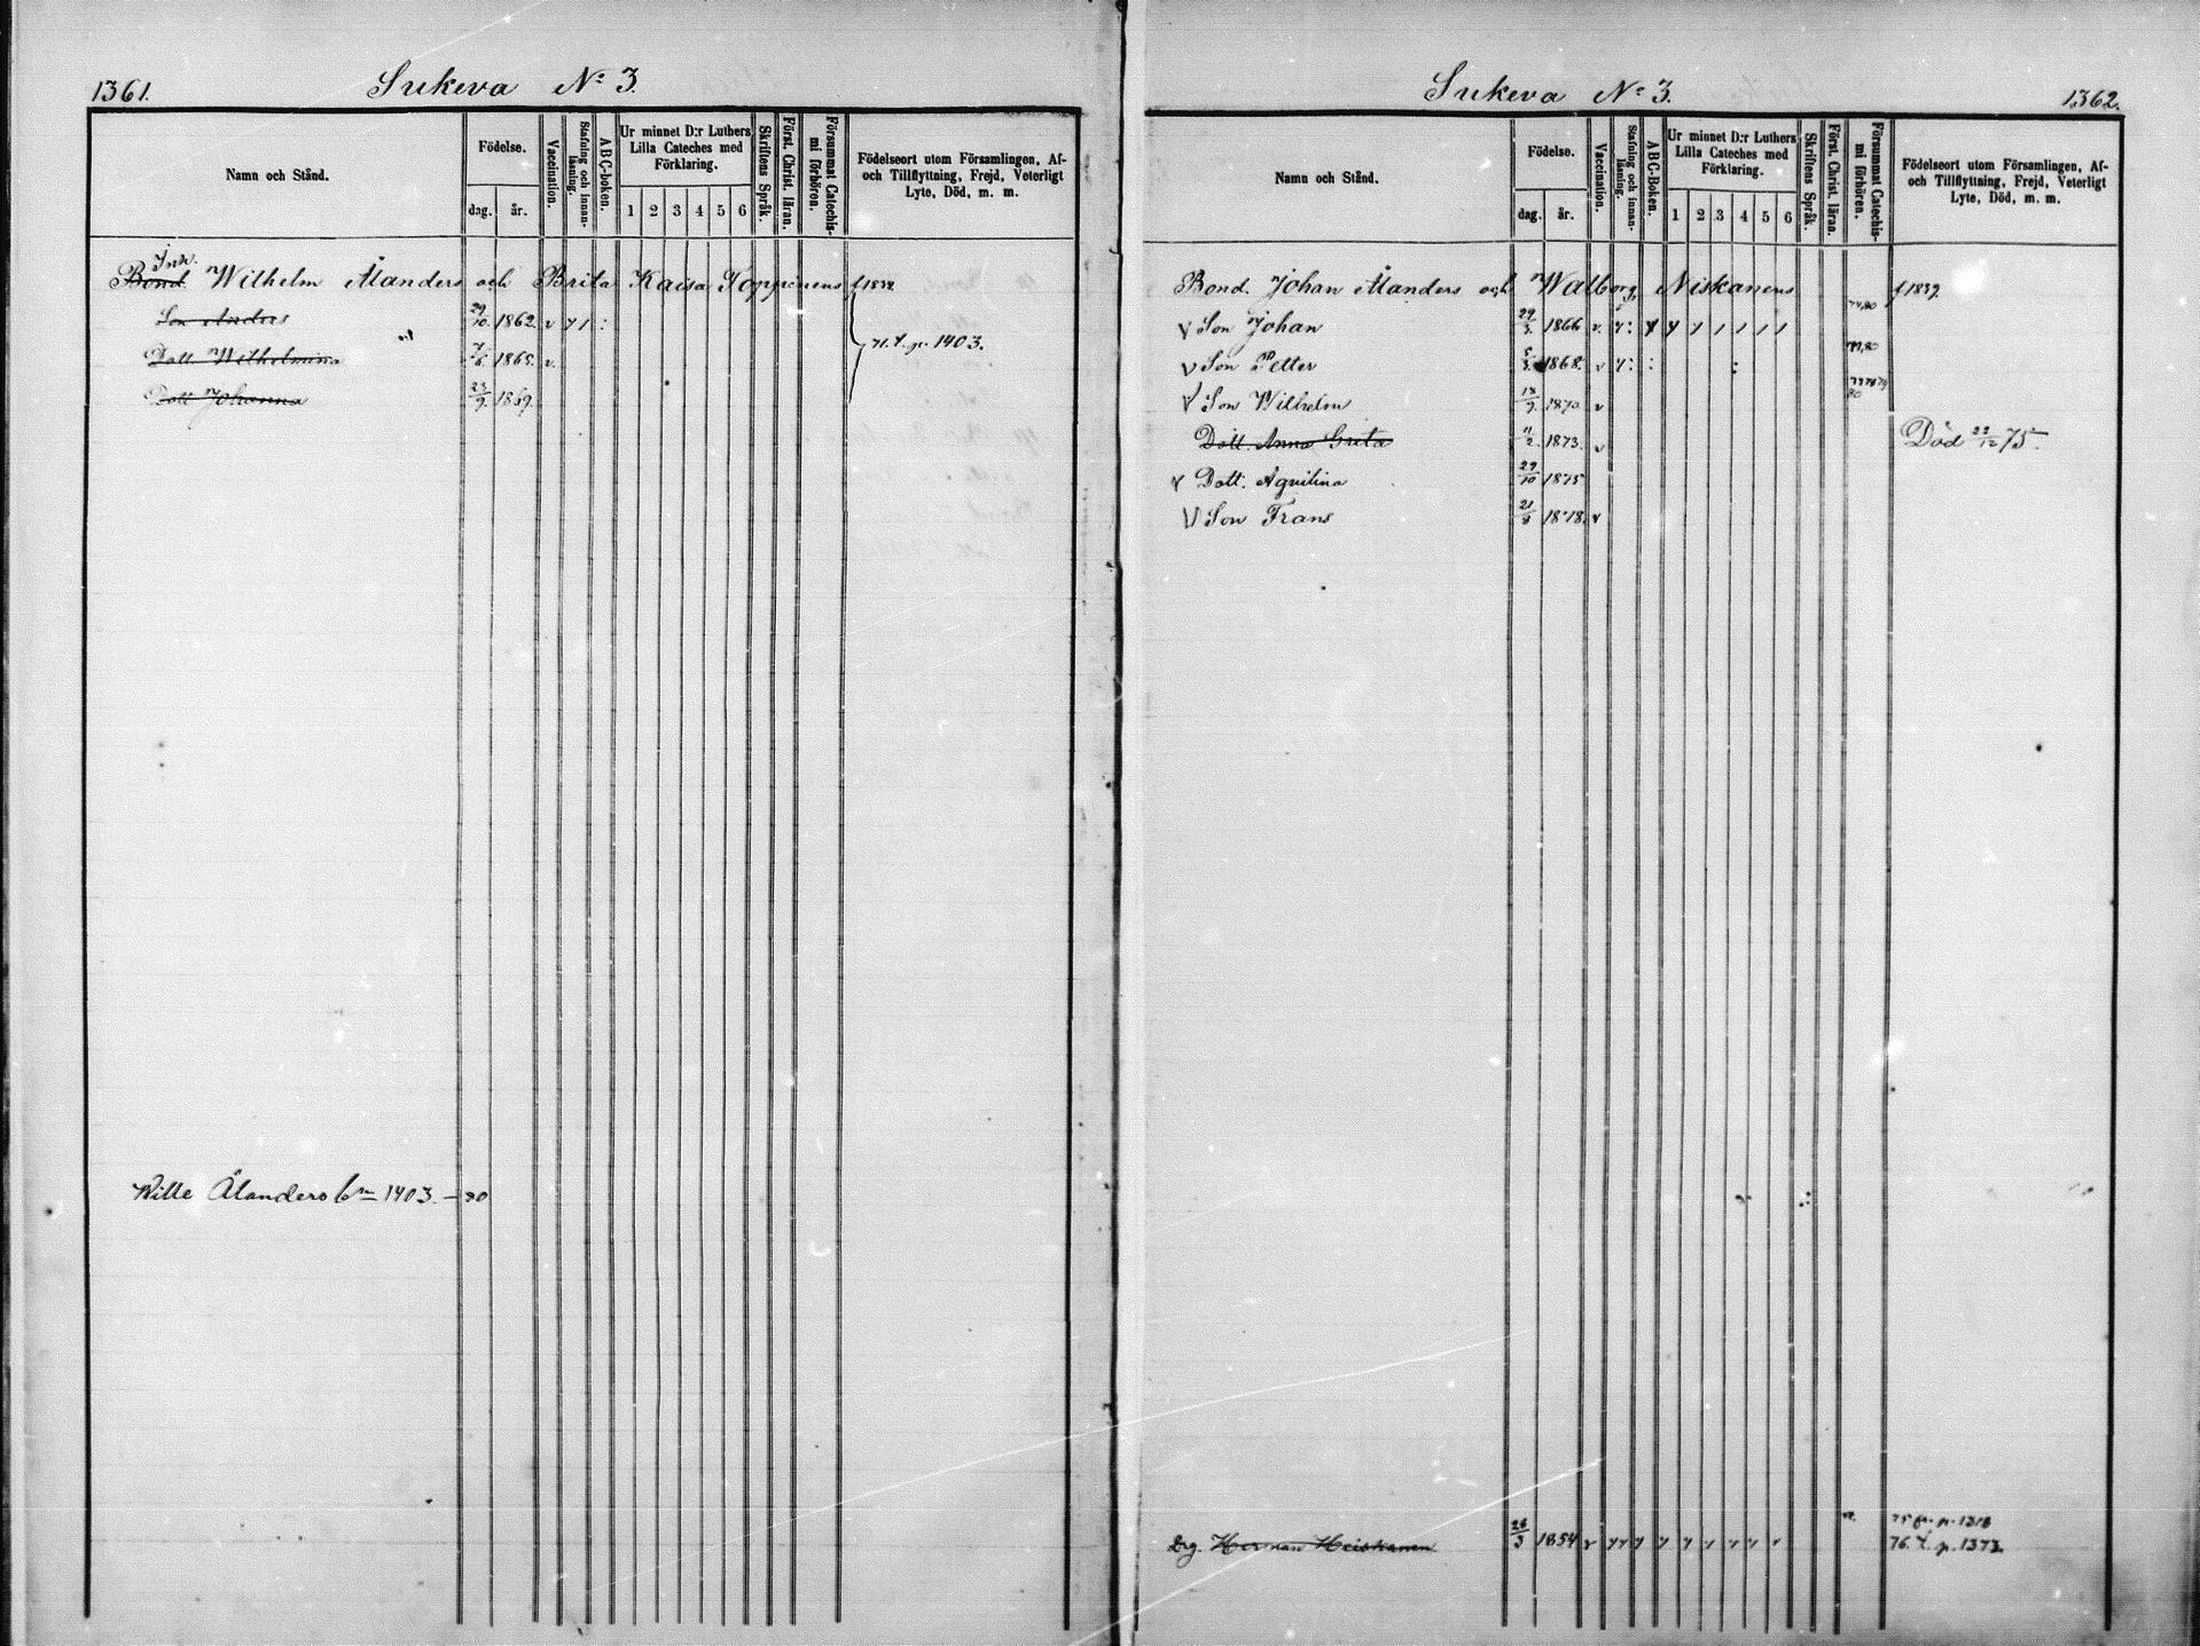 1361.
Sukeva Nº 3.
Namn och Stånd.
Födelse.
dag. år.
Vaccination.
Stafning och innan-läsning.
ABC-boken.
Ur minnet D:r Luthers
Lilla Cateches med
Förklaring.
1 2 3 4 5 6
Skriftens Språk.
Först. Christ. läran.
Försummat Catechis-mi förhören.
Födelseort utom Församlingen, Af-
och Tillflyttning, Frejd, Veterligt
Lyte, Död, m. m.
Inh.
Bond Wilhelm Ålanders och Brita Kaisa Toppinens
Son Anders 29/10 1862. v
Dott. Wilhelmina 7/6 1865. v.
71. t. p. 1403.
Dott Johanna 23/9 1869.
Wille Ålanders 1403. – 80
Sukeva Nº 3.
1362.
Namn och Stånd.
Födelse.
dag. år.
Vaccination.
Stafning och innan-läsning.
ABC-Boken.
Ur minnet D:r Luthers
Lilla Cateches med
Förklaring.
1 2 3 4 5 6
Skriftens Språk.
Först. Christ. läran.
Försummat Catechis-mi förhören.
Födelseort utom Församlingen, Af-
och Tillflyttning, Frejd, Veterligt
Lyte, Död, m. m.
Bond. Johan Ålanders och Walborg Niskanens f 1839.
v Son Johan 29/3. 1866 v.
v Son Petter 5/3. 1868. v
v Son Wilhelm 13/9. 1870. v
Dott. Anna Greta 11/2. 1873. v Död 22/12 75.
v Dott. Aqvilina 29/10 1875
v Son Frans 21/8 1878. v
75 fr. p. 1318
Drg. Herman Heiskanen 26/3 1854 v 76. t. p. 1373.